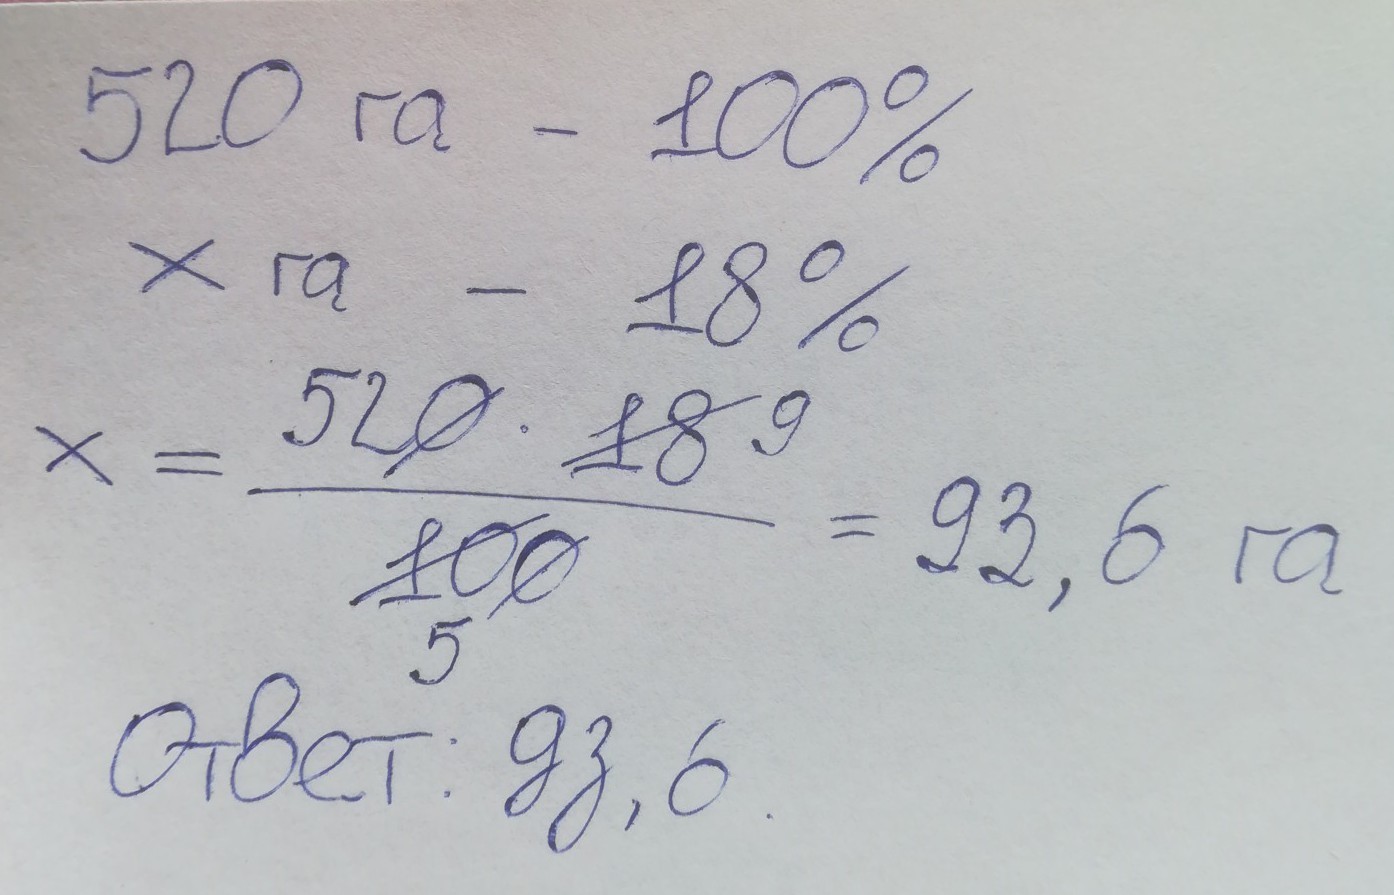 520 га - 100%
х га - 18%
х = 520 · 18 9 / 100 5 = 93,6 га
Ответ: 93,6.